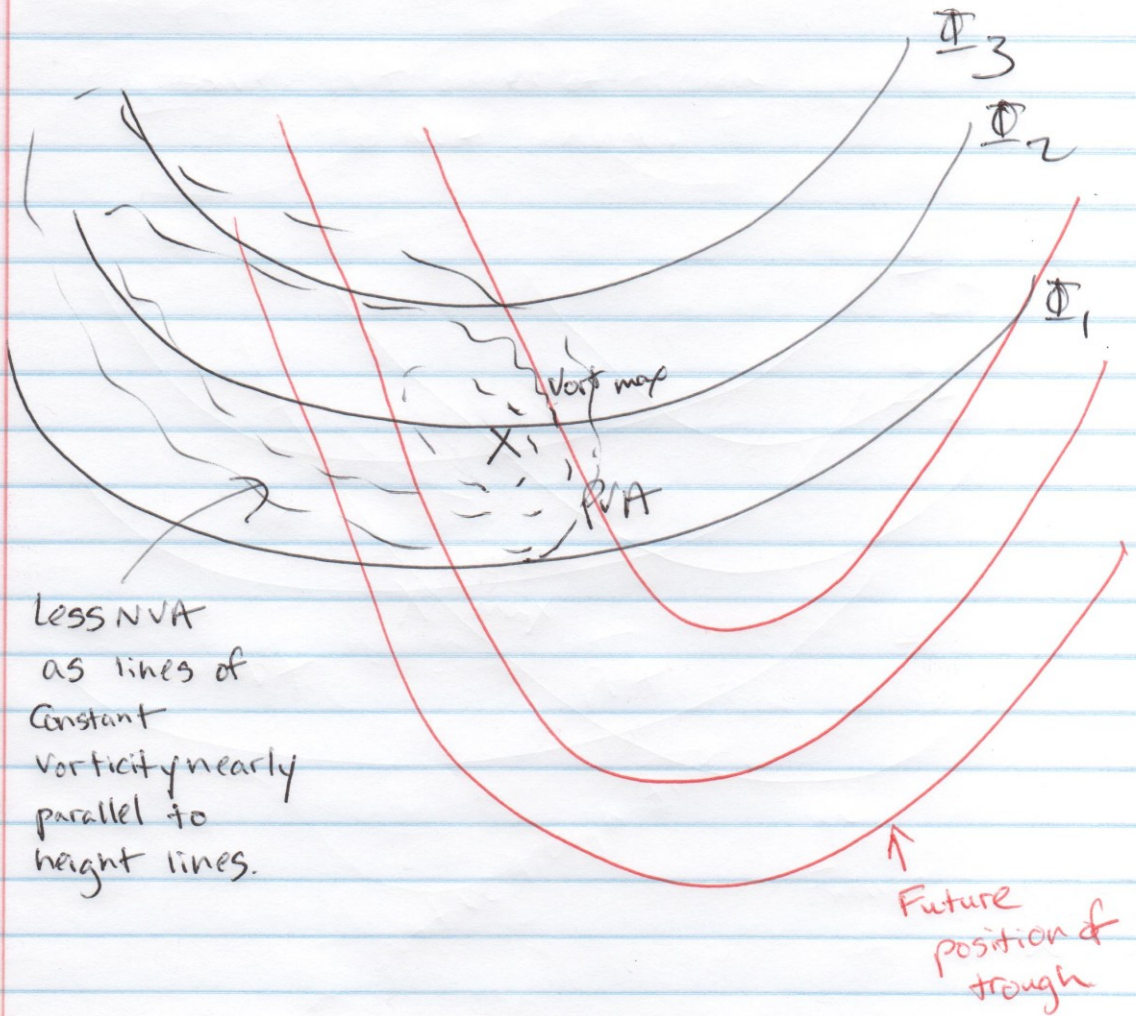 Φ3
Φ2
Φ1
Vort max
X
PVA
Less NVA
as lines of
Constant
Vorticity nearly
parallel to
height lines.
Future
position of
trough